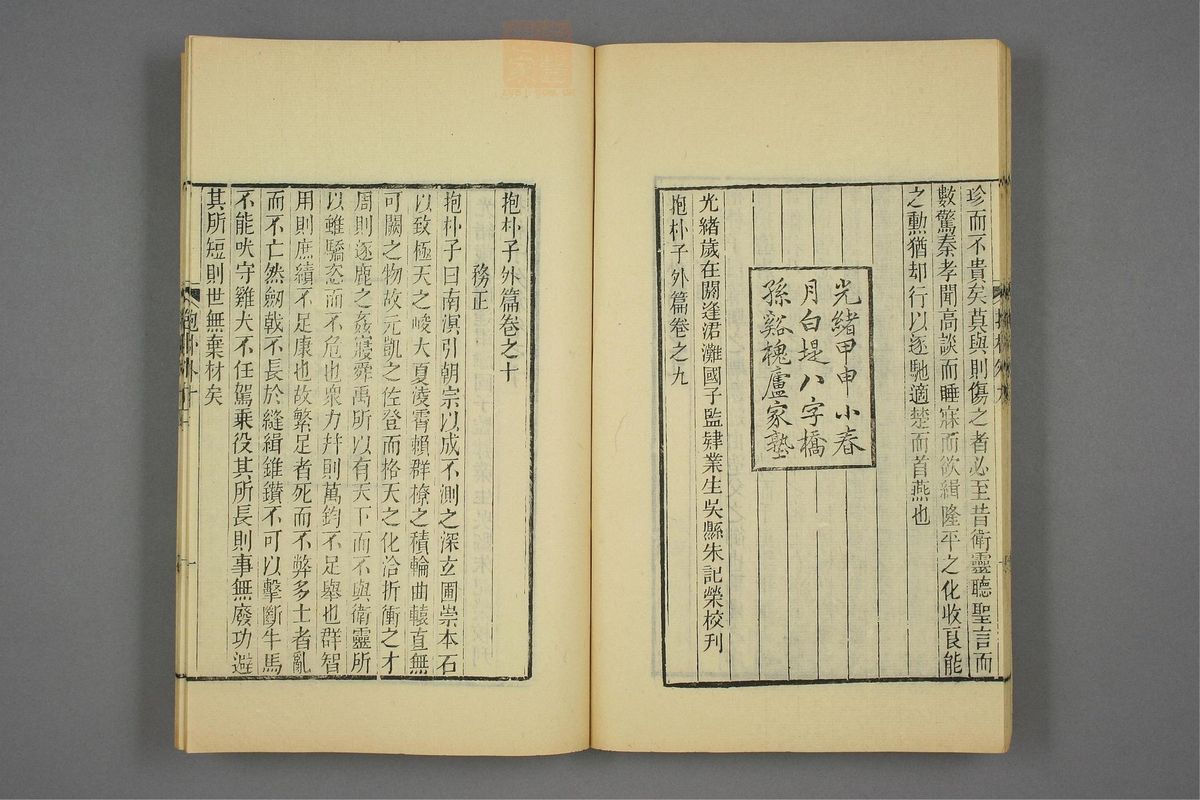 珍而不貴矣莫與則傷之者必至昔衛靈聽聖言而
數驚秦孝聞高談而睡寐而欲緝隆平之化收良能
之勳猶却行以逐馳適楚而首燕也
光緒甲申小春
月白堤八字橋
孫谿槐廬家塾
光緒歲在閼逢涒灘國子監肄業生吳縣朱記榮校刊
抱朴子外篇卷之九
抱朴子外篇卷之十
務正
抱朴子曰南溟引朝宗以成不測之深玄圃崇本石
以致極天之峻大夏凌霄賴群橑之積輪曲轅直無
可闕之物故元凱之佐登而格天之化洽折衝之才
周則逐鹿之姦寢舜禹所以有天下而不與衛靈所
以雖驕恣而不危也眾力幷則萬鈞不足舉也群智
用則庶績不足康也故繁足者死而不弊多士者亂
而不亡然劒戟不長於縫緝錐鑽不可以擊斷牛馬
不能吠守雞犬不任駕乘役其所長則事無廢功避
其所短則世無棄材矣